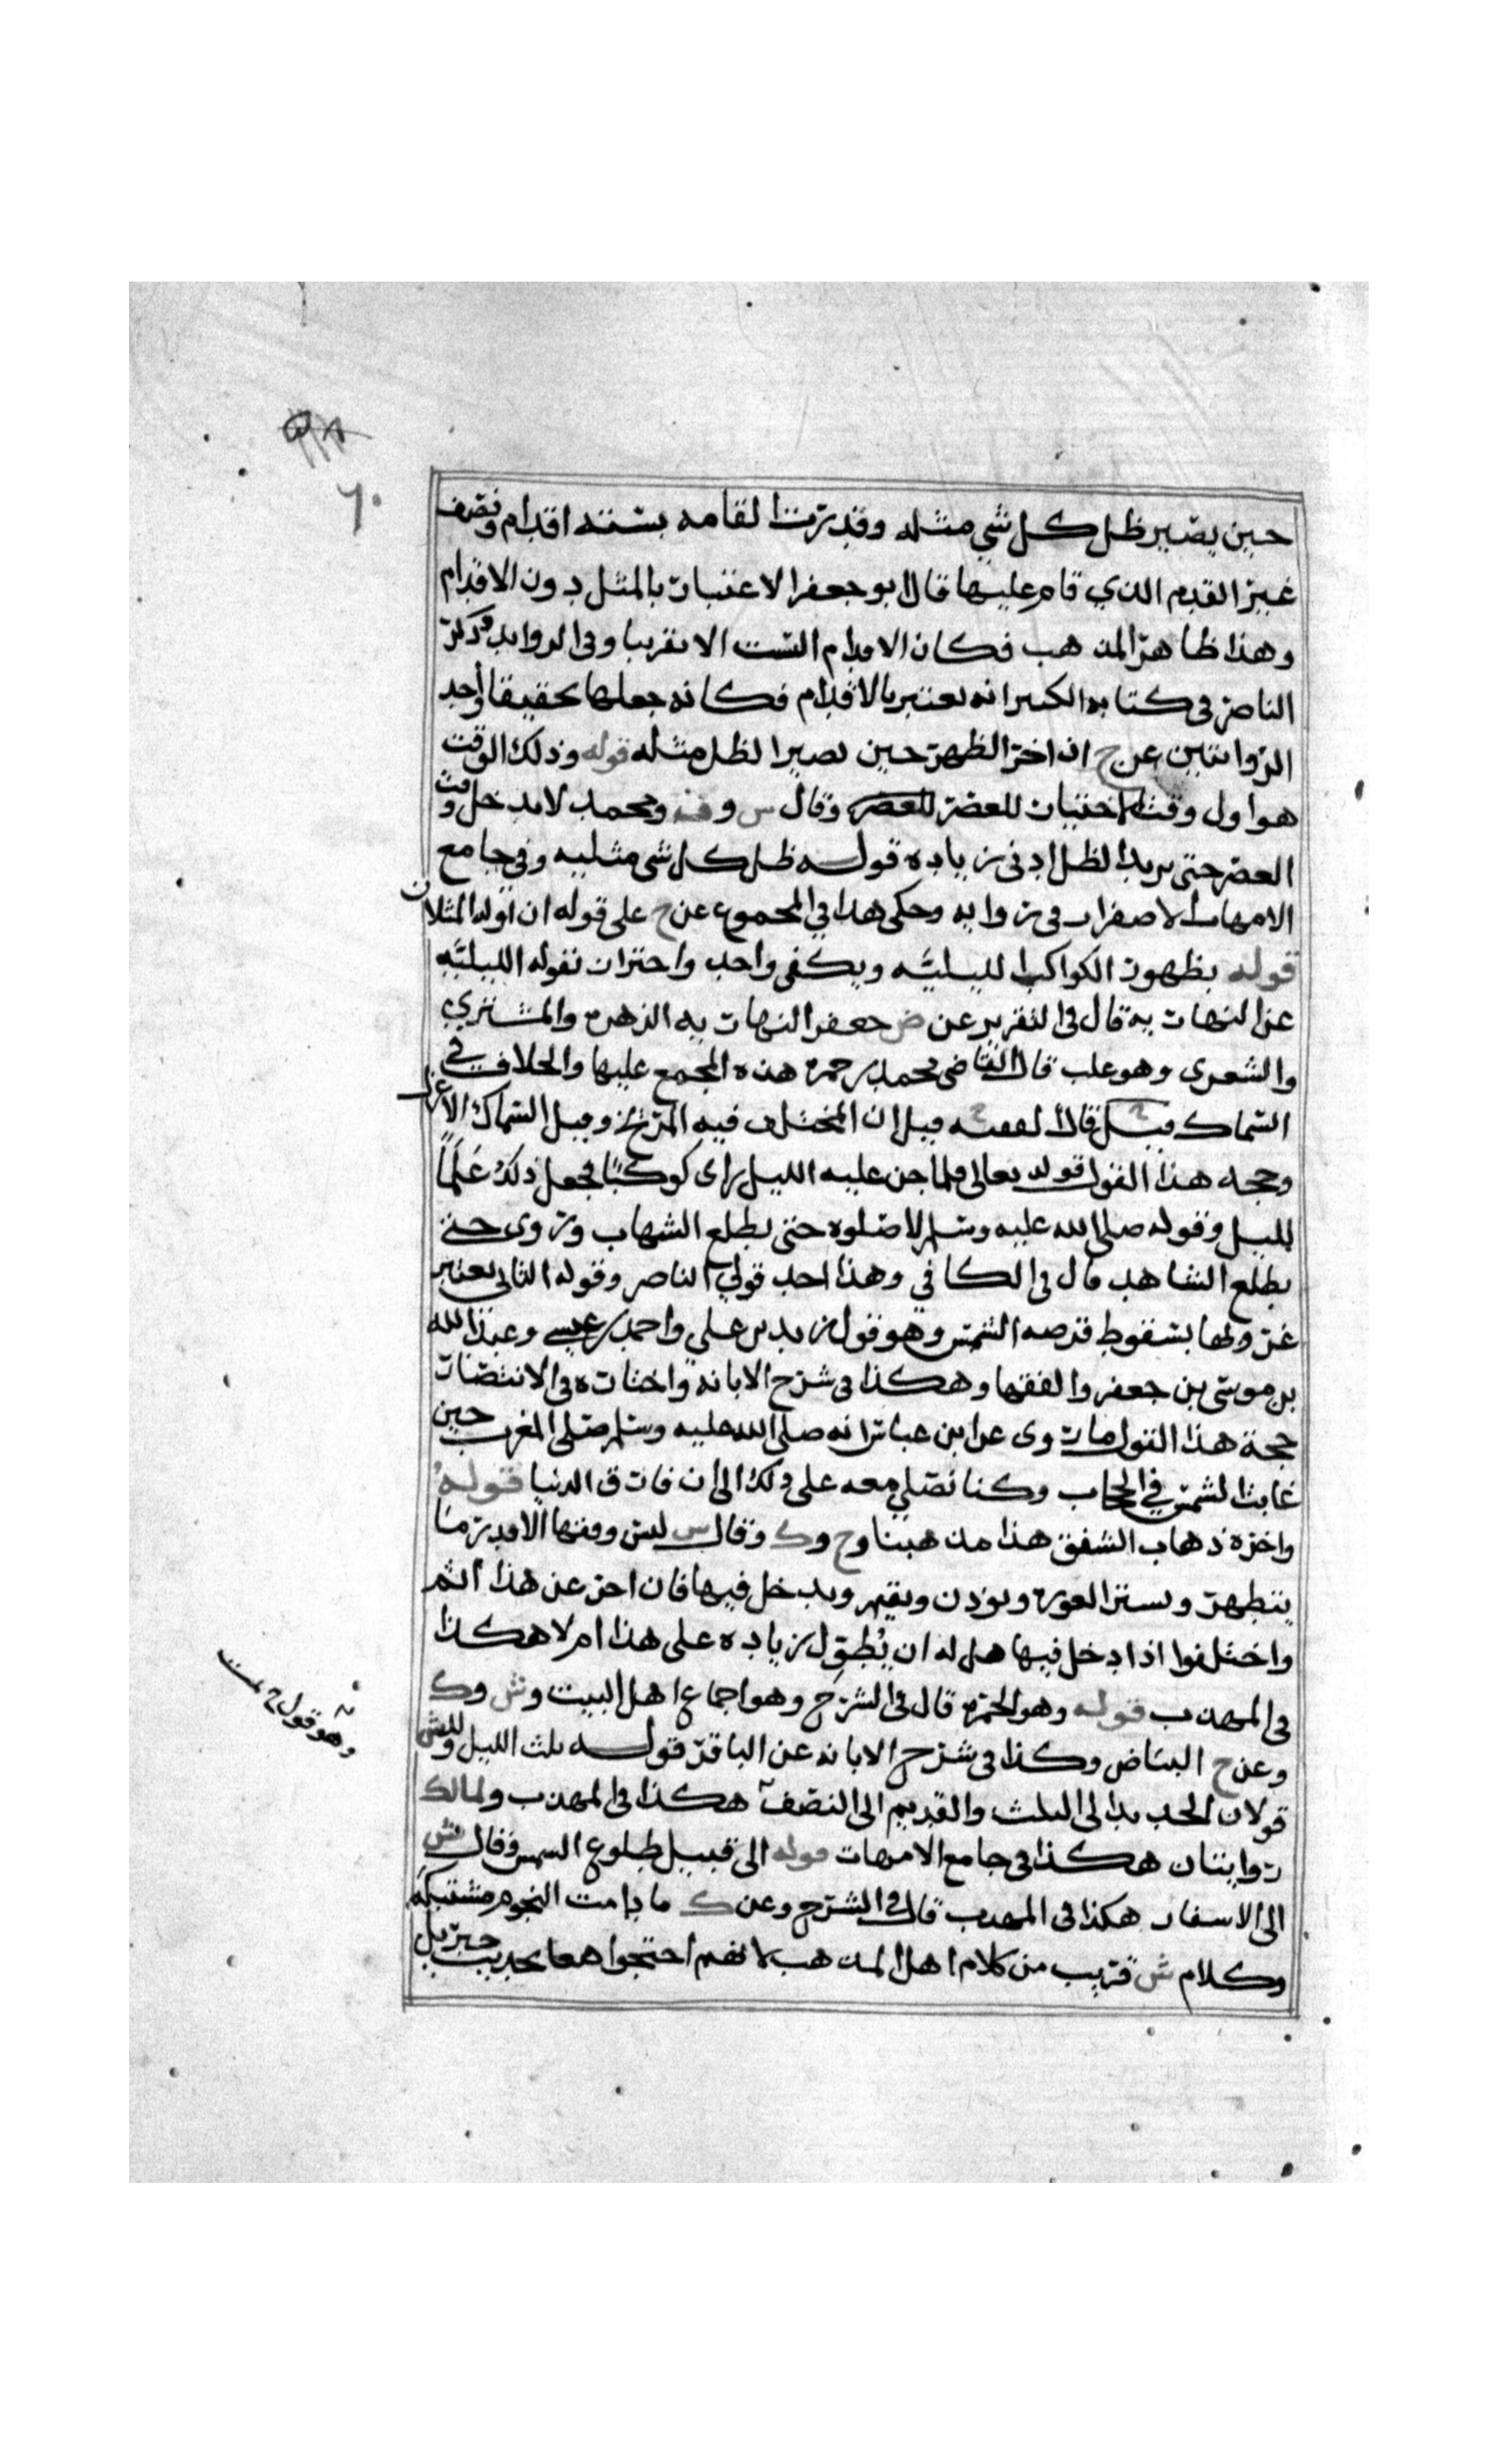 ٦٠
حين يصير ظل كل شي مثله وقدرت القامه بستة اقدام ونصف
غير القدم الذي قام عليها قال ابو جعفر الاعتبار بالمثل دون الاقدام
وهذا ظاهر المذهب فكان الاقدام الست الا تقريبا وفي الزوايد وذكر
الناصر في كتابه الكبير انه يعتبر بالاقدام فكانه جعلها تحقيقا واحد
الروايتين عن ح ان اخر الظهر حين يصير الظل مثله قوله وذلك الوقت
هو اول وقت اختيار للعصر للعصر وقال س وف ومحمد لا يدخل وقت
العصر حتى يزيد الظل ادنى زياده قوله ظل كل شي مثليه وفي جامع
الامهات الاصفرار في روايه وحكى هذا في المجموع عن ح على قوله ان اوله المثلان
قوله بظهور الكواكب الليليه ويكفي واحد واحترز بقوله الليليه
عن النهاريه قال في التقرير عن ض جعفر النهاريه الزهره والمشتري
والشعرى وهو علب قال القاضي محمد بن حمزه هذه المجمع عليها والخلاف في
السماك قيل قال الفقيه ح قيل ان المختلف فيه المريخ وقيل السماك الاعزل
وحجه هذا القول قوله تعالى فلما جن عليه الليل راى كوكبًا فجعل ذلك عَلَمًا
لليل وقوله صلى الله عليه وسلم لا صلوه حتى يطلع الشهاب وروى حتى
يطلع الشاهد قال في الكافي وهذا احد قولي الناصر وقوله الثاني يعتبر
غروبها بسقوط قرصه الشمس وهو قول زيد بن علي واحمد بن عيسى وعبد الله
بن موسى بن جعفر والفقها وهكذا في شرح الابانه واختاره في الانتصار
حجة هذا القول ما روى عن ابن عباس انه صلى الله عليه وسلم صلى المغرب حين
غابت الشمس في الحجاب وكنا نصلي معه على ذلك الى ان فارق الدنيا قوله
واخره ذهاب الشفق هذا مذهبنا وح وك وقال س ليس وقتها الا قدر ما
يتطهر ويستر العوره ويوذن ويقيم ويدخل فيها فان اخر عن هذا اثم
واختلفوا اذا دخل فيها هل له ان يُطوّل زياده على هذا ام لا هكذا
في المهذب قوله وهو الحمره قال في الشرح وهو اجماع اهل البيت وش وك
وعن ح البياض وكذا في شرح الابانه عن الباقر قوله ثلث الليل وللش
قولان الجديد الى الثلث والقديم الى النصف هكذا في المهذب ولمالك
روايتان هكذا في جامع الامهات قوله الى قبيل طلوع الشمس وقال ش
الى الاسفار هكذا في المهذب قال في الشرح وعن ك ما دامت النجوم مشتبكه
وكلام ش قريب من كلام اهل المذهب لانهم احتجوا هنا بحديث جبريل
وهو قول ح تمت